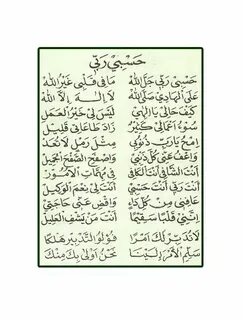 حَسْبِيْ رَبِّيْ
حَسْبِيْ رَبِّيْ جَلَّ اللهْ مَا فِيْ قَلْبِيْ غَيْرُ اللهْ
عَلَى الْهَادِيْ صَلَّى اللهْ لَا إِلٰهَ إِلَّا اللهْ
كَيْفَ حَالِيْ يَا إِلٰهِيْ لَيْسَ لِيْ خَيْرُ الْعَمَلْ
سُوْءُ أَعْمَالِيْ كَثِيْرٌ زَادَ طَاعَاتِيْ قَلِيْلْ
اِمْحُ يَا رَبِّ ذُنُوْبِيْ مِثْلَ رَمْلٍ لَا تُعَدّْ
وَاعْفُ عَنِّيْ كُلَّ ذَنْبِيْ وَاصْفَحِ الصَّفْحَ الْجَمِيْلْ
أَنْتَ الشَّافِيْ أَنْتَ الْكَافِيْ فِيْ مُهِمَّاتِ الْأُمُوْرْ
أَنْتَ رَبِّيْ أَنْتَ حَسْبِيْ أَنْتَ لِيْ نِعْمَ الْوَكِيْلْ
عَافِنِيْ مِنْ كُلِّ دَاءٍ وَاقْضِ عَنِّيْ حَاجَتِيْ
إِنَّنِيْ قَلْبًا سَقِيْمًا أَنْتَ مَنْ يَشْفِي الْعَلِيْلْ
لَا تُدَبِّرْ لَكَ أَمْرًا فَأُولُو التَّدْبِيْرِ هَلْكٰى
سَلِّمِ الْأَمْرَ إِلَيْنَا نَحْنُ أَوْلٰى بِكَ مِنْكَ